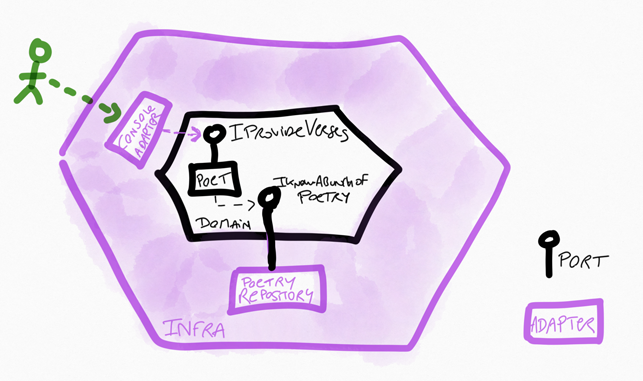 CONSOLE
ADAPTER
IPROVIDEVERSES
POET
IKNOWABUNCHOF
POETRY
DOMAIN
POETRY
REPOSITORY
INFRA
PORT
ADAPTER